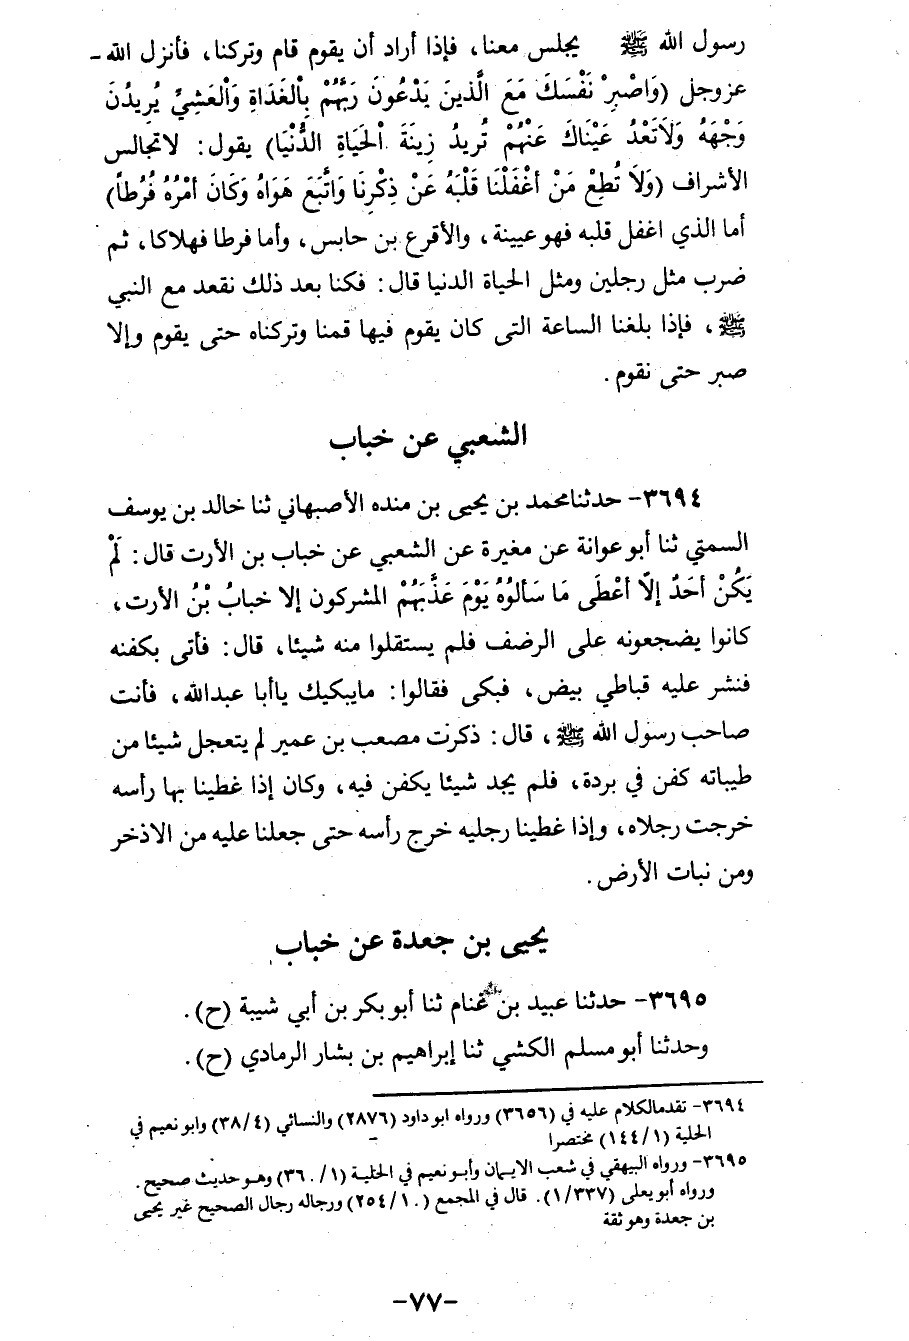 رسول الله ﷺ يجلس معنا، فإذا أراد أن يقوم قام وتركنا، فأنزل الله ـ
عزوجل (وَاصْبِرْ نَفْسَكَ مَعَ الَّذينَ يَدْعُونَ رَبَّهُمْ بِالْغَدَاةِ وَالْعَشِيِّ يُرِيدُنَ
وَجْهَهُ وَلَاتَعْدُ عَيْنَاكَ عَنْهُمْ تُريدُ زِينَةَ الْحَيَاةِ الدُّنْيَا) يقول: لاتجالس
الأشراف (وَلَا تُطِعْ مَنْ أغْفَلْنَا قَلْبَهُ عَنْ ذِكْرِنَا وَاتَّبَعَ هَوَاهُ وَكَانَ أمْرُهُ فُرُطاً)
أما الذي اغفل قلبه فهو عيينة، والأقرع بن حابس، وأما فرطا فهلاكا، ثم
ضرب مثل رجلين ومثل الحياة الدنيا قال: فكنا بعد ذلك نقعد مع النبي
ﷺ، فإذا بلغنا الساعة التى كان يقوم فيها قمنا وتركناه حتى يقوم وإلا
صبر حتى نقوم.
الشعبي عن خباب
٣٦٩٤- حدثنا محمد بن يحيى بن منده الأصبهاني ثنا خالد بن يوسف
السمتي ثنا أبو عوانة عن مغيرة عن الشعبي عن خباب بن الأرت قال: لَمْ
يَكُنْ أحَدٌ إلاّ أعْطَى مَا سَألوُهُ يَوْمَ عَذَّبَهُمْ المشركون إلا خبابُ بْنُ الأرت،
كانوا يضجعونه على الرضف فلم يستقلوا منه شيئا، قال: فأتى بكفنه
فنشر عليه قباطي بيض، فبكى فقالوا: مايبكيك ياأبا عبدالله، فأنت
صاحب رسول الله ﷺ، قال: ذكرت مصعب بن عمير لم يتعجل شيئا من
طيباته كفن في بردة، فلم يجد شيئا يكفن فيه، وكان إذا غطينا بها رأسه
خرجت رجلاه، وإذا غطينا رجليه خرج رأسه حتى جعلنا عليه من الاذخر
ومن نبات الأرض.
يحيى بن جعدة عن خباب
٣٦٩٥- حدثنا عبيد بن غنام ثنا أبو بكر بن أبي شيبة (ح).
وحدثنا أبو مسلم الكشي ثنا إبراهيم بن بشار الرمادي (ح).
٣٦٩٤- تقدمالكلام عليه في (٣٦٥٦) ورواه ابو داود (٢٨٧٦) والنسائي (٣٨/٤) وابو نعيم في
الحلية (١٤٤/١) مختصرا
٣٦٩٥- ورواه البيهقي في شعب الايمان وأبو نعيم في الحلية (٣٦٠/١) وهو حديث صحيح.
ورواه أبو يعلى (١/٣٣٧). قال في المجمع (٢٥٤/١٠) ورجاله رجال الصحيح غير يحيى
بن جعدة وهو ثقة
-٧٧-